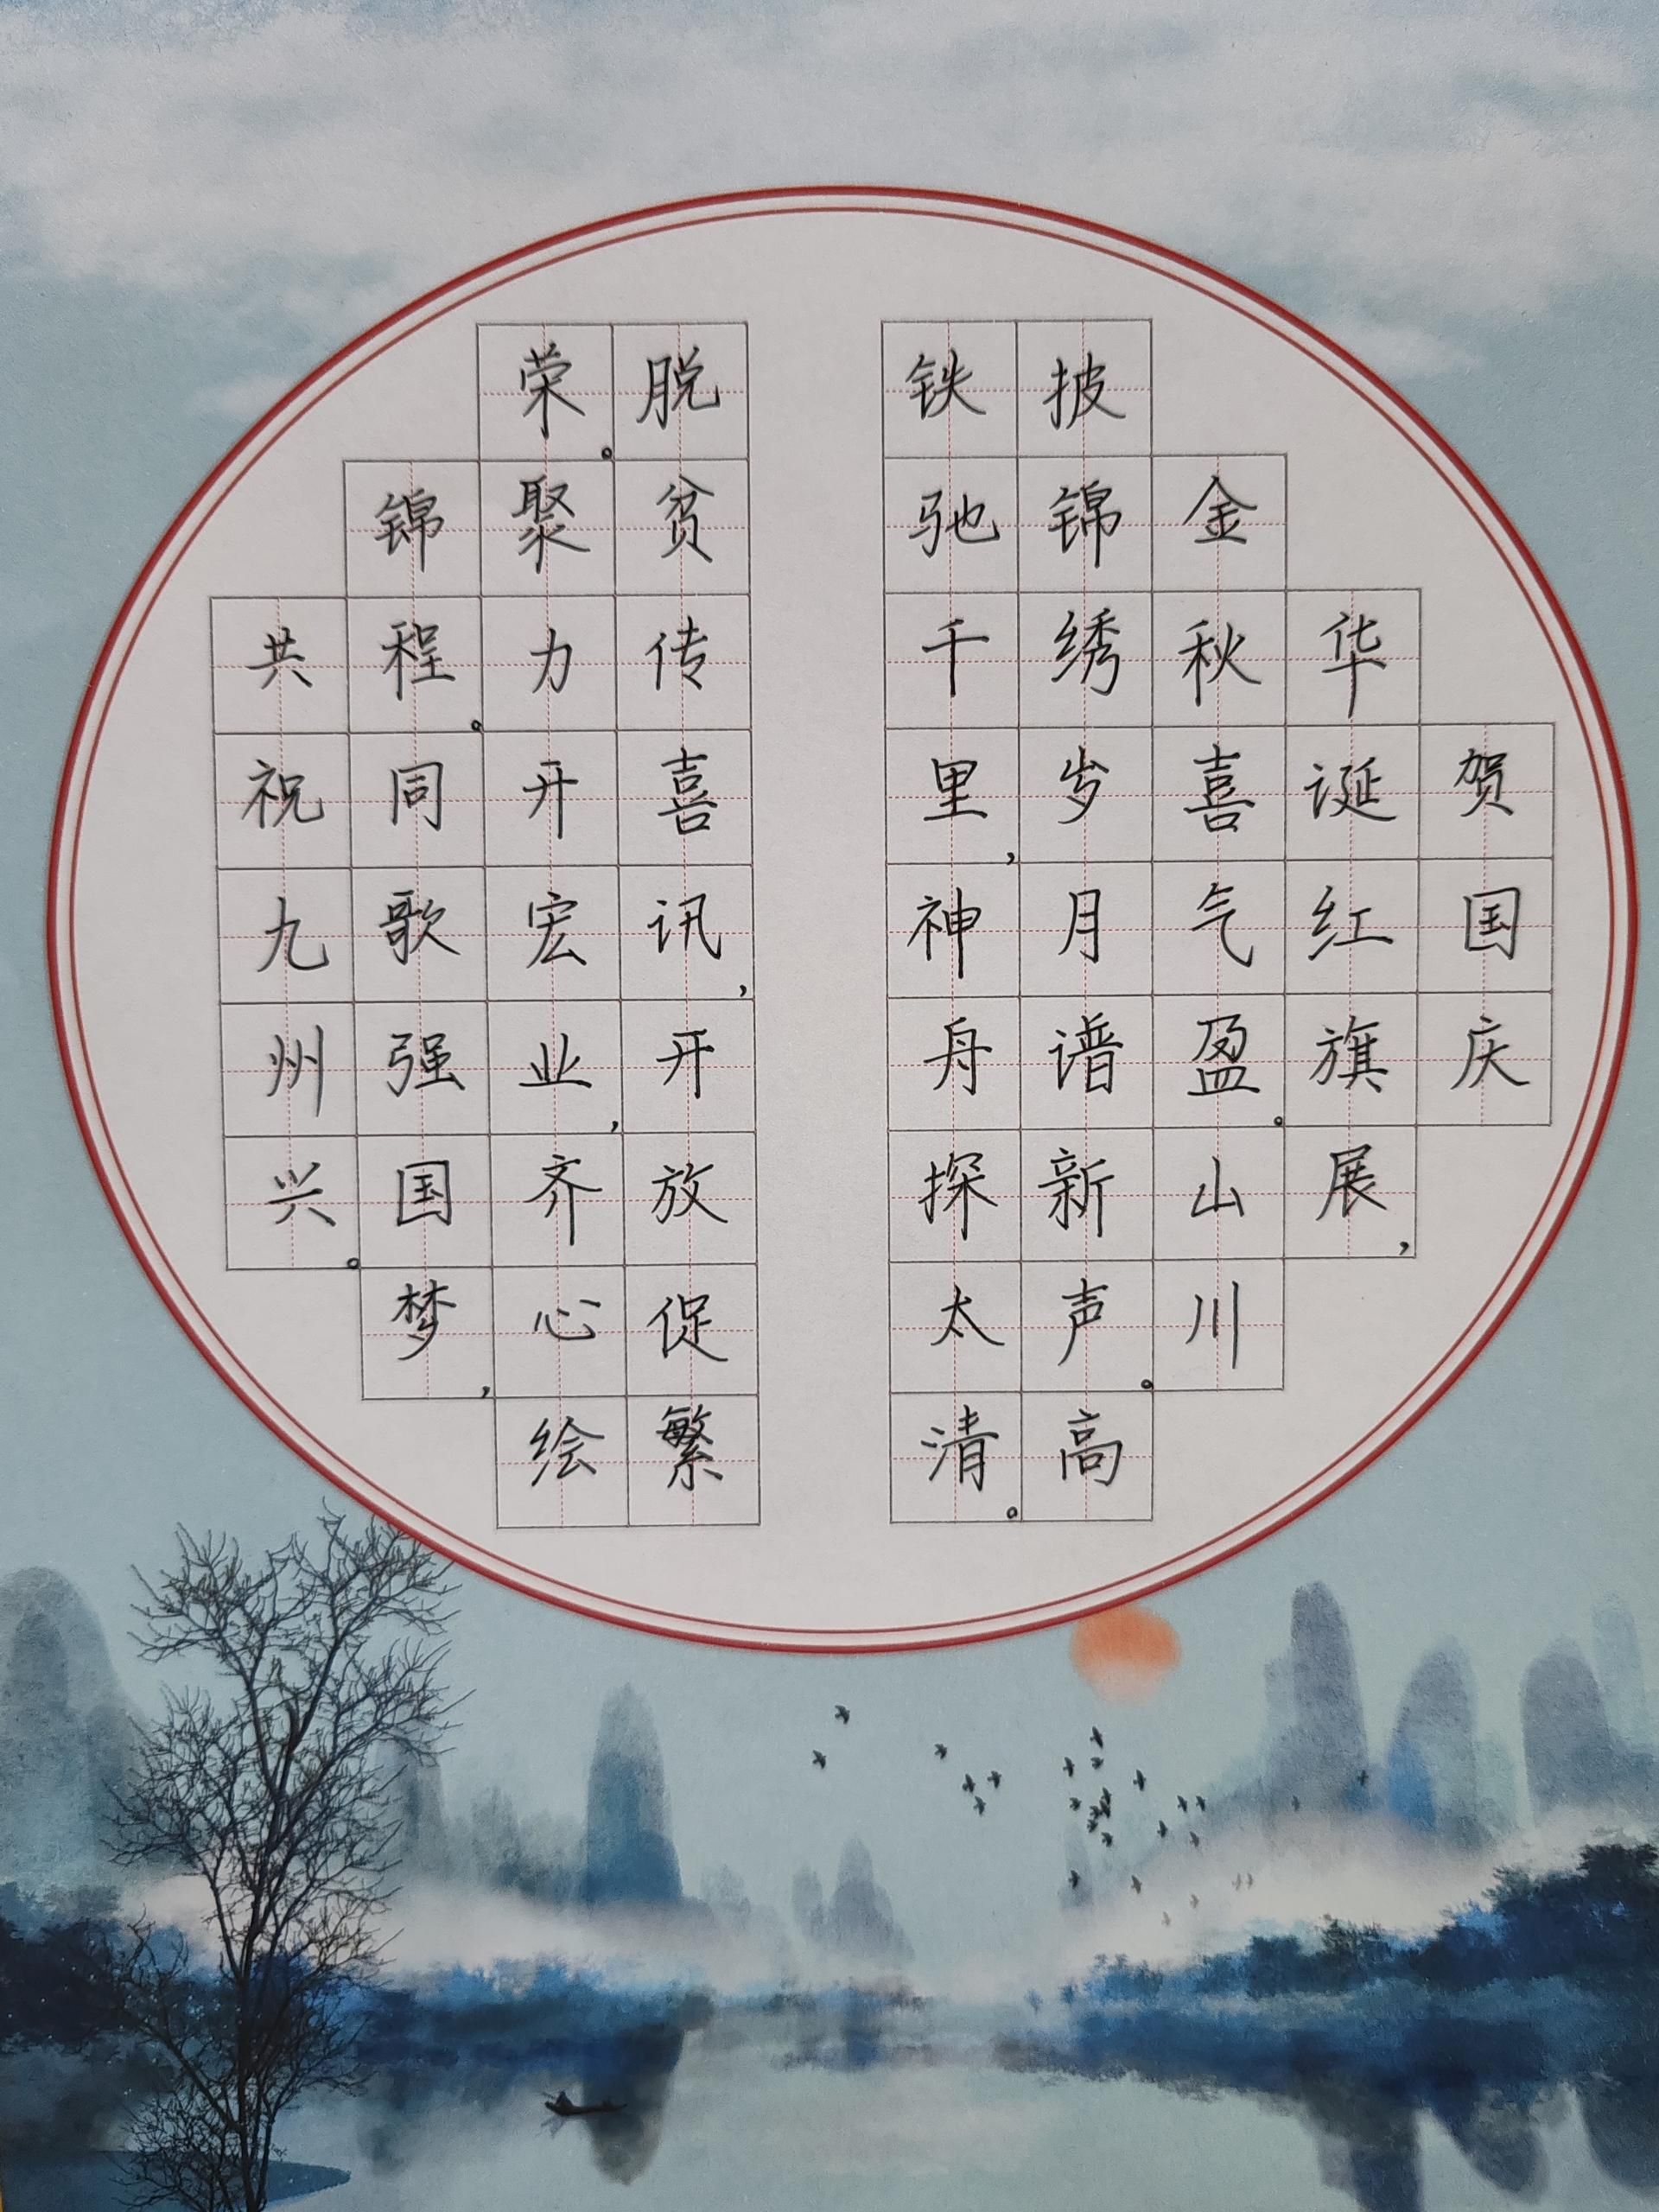 贺国庆
华诞红旗展，
金秋喜气盈。山川
披锦绣岁月谱新声。高
铁驰千里，神舟探太清。
脱贫传喜讯，开放促繁
荣。聚力开宏业，齐心绘
锦程。同歌强国梦，
共祝九州兴。